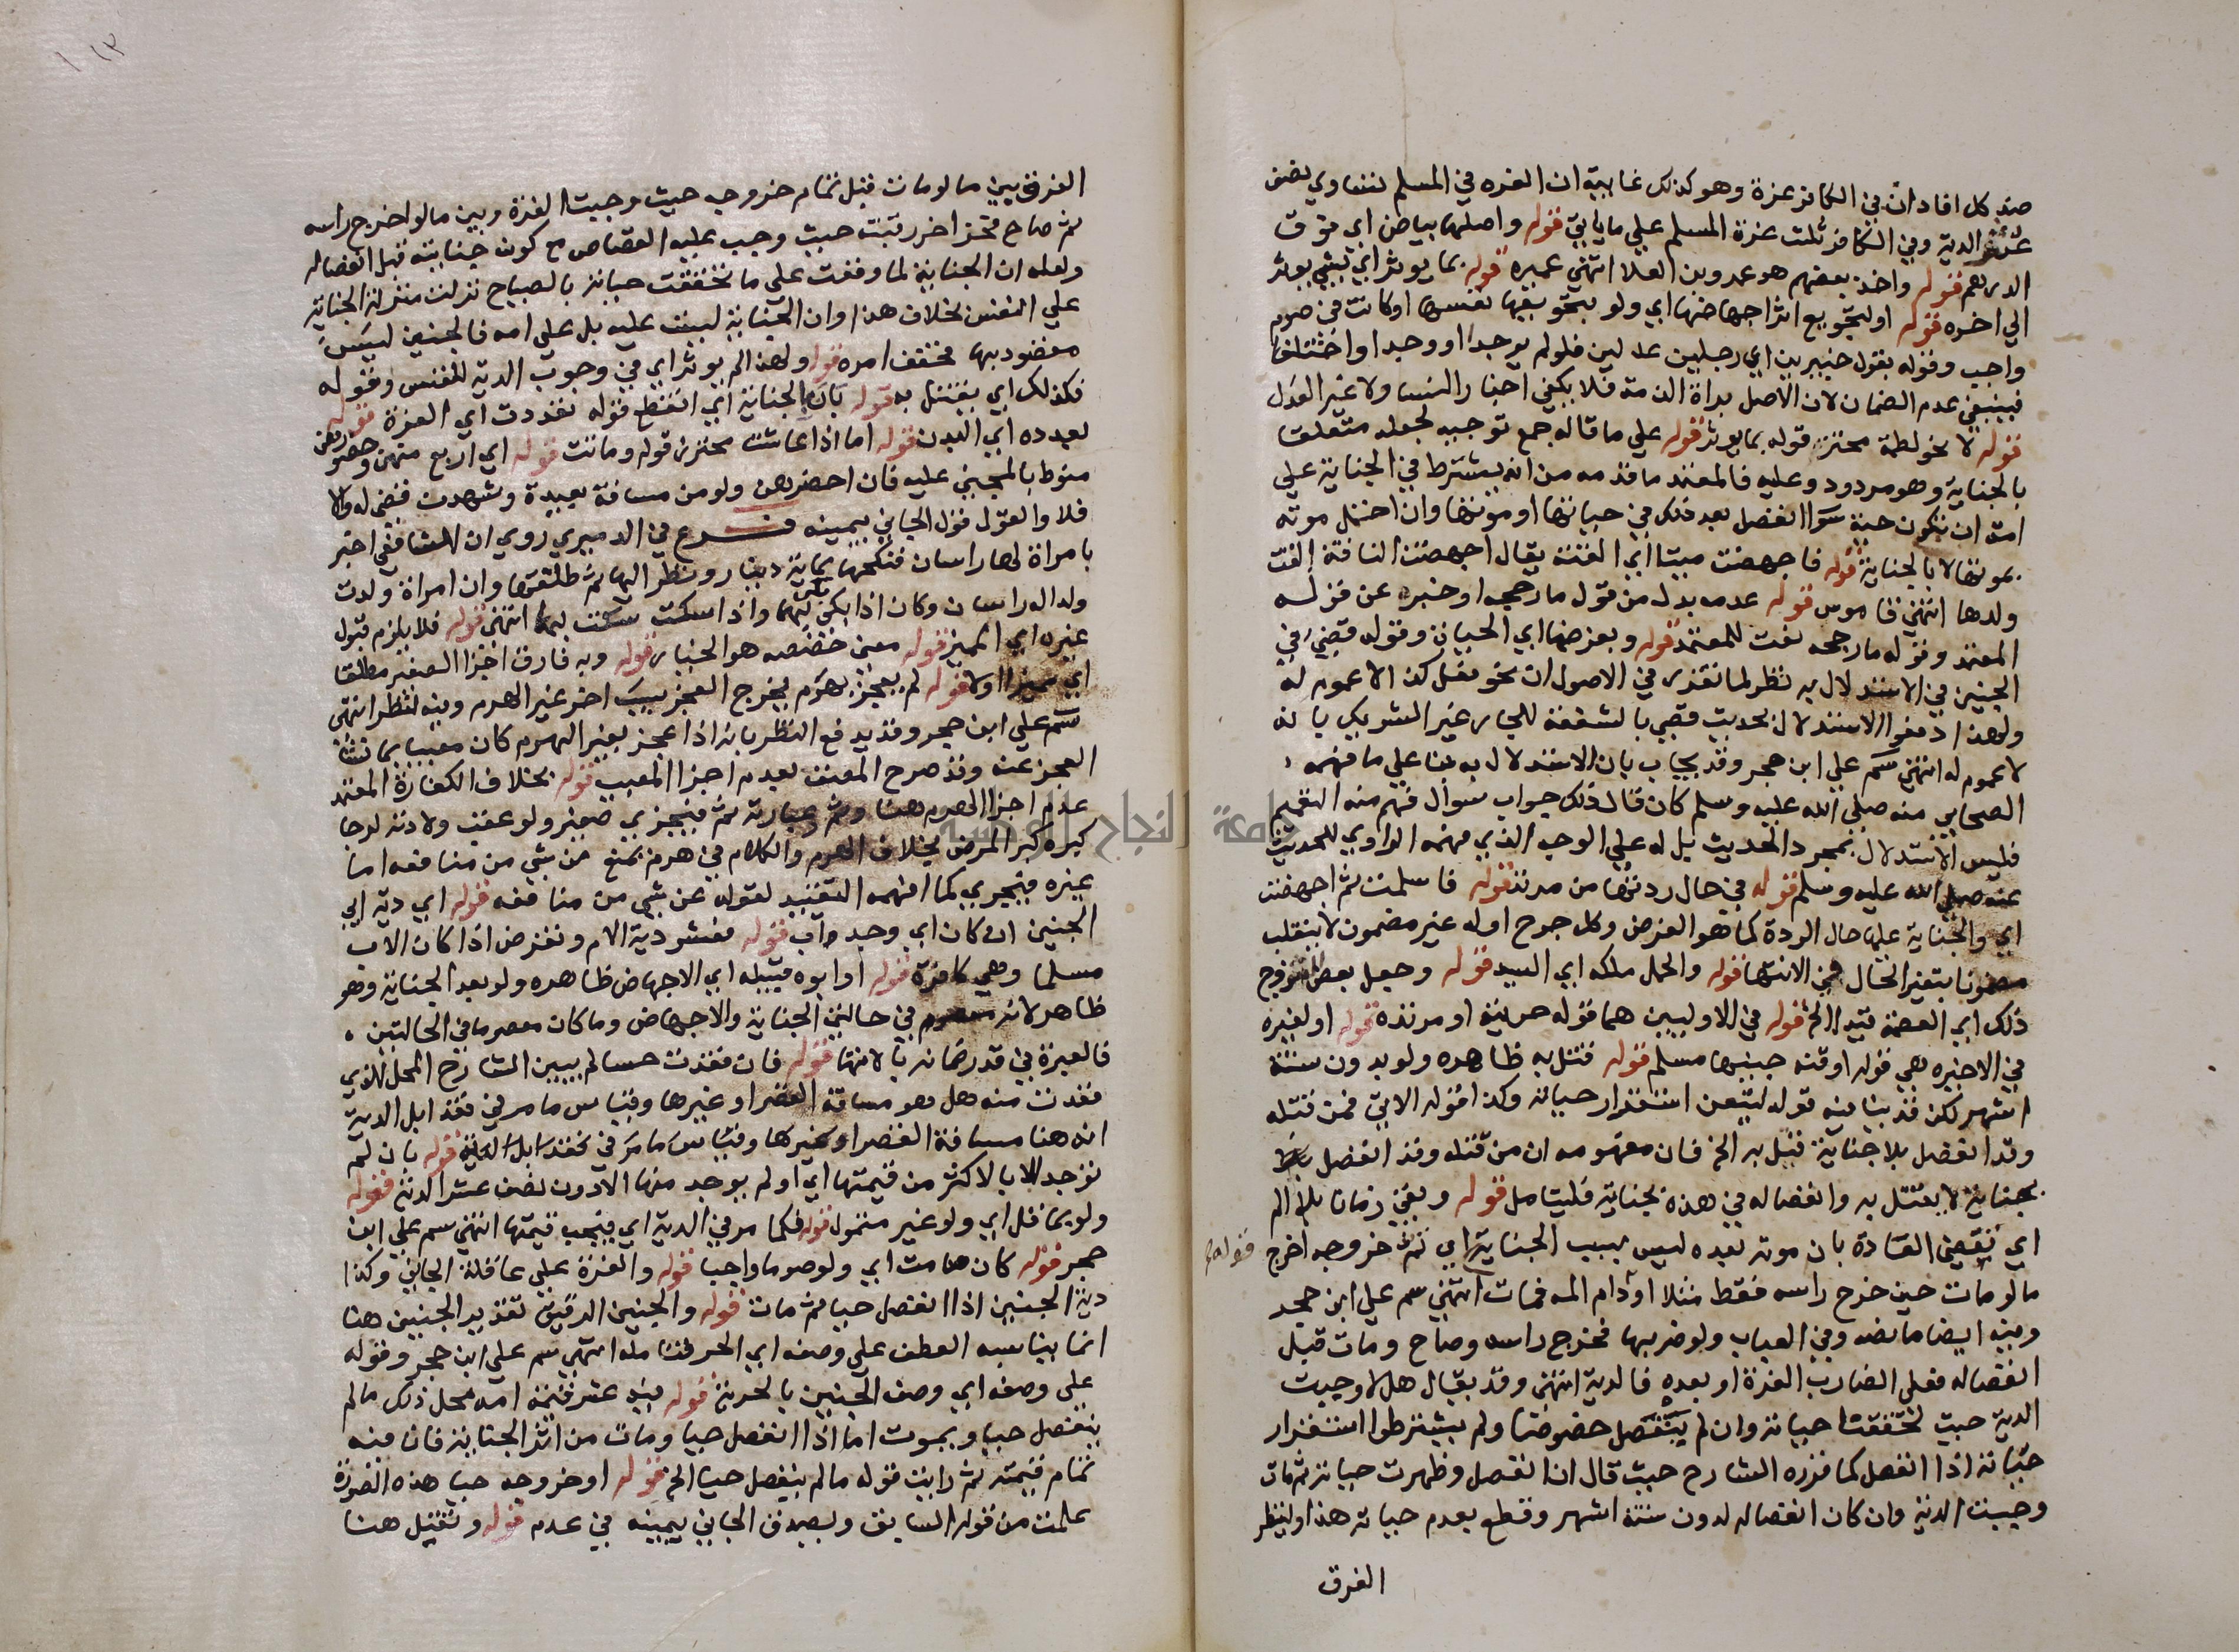 صد كل افاد ان في الكافر غرة وهو كذلك غاييته ان الغره في المسلم تساوي نصف
عشر الدية وفي الكافر ثلث غرة المسلم علي ما ياتي قوله واصلها بياض اي فوق
الدرهم قوله واخذ بعضهم هو عمرو بن العلا انتهي عميره قوله بما يوثر اي تبقي يوثر
الي اخره قوله او لتجويع اثر اجهاضها اي ولو بتجويعها نفسها او كانت في صوم
واجب وقوله بقول خبيرين اي رجلين عدلين فلو لم يوجدا او وجدا واختلفا
فينبغي عدم الضمان لان الاصل براة الذمة فلا يكفي اخبار النسا ولا غير العدل
قوله لا نحو لطمة محترز قوله بما يوثر قوله علي ما قاله جمع توجيه لجعله متعلقا
بالجناية وهو مردود وعليه فالمعتمد ما قدمه من انه يشترط في الجناية علي
امه ان تكون حية سوا انفصل بعد ذلك في حياتها او موتها وان احتمل موته
بموتها لا بالجناية قوله فاجهضت ميتا اي القته يقال اجهضت الناقة القت
ولدها انتهي قاموس قوله عدمه بدل من قول ما رجحه او خبره عن قوله
المعتمد وقوله ما رجحه نعت للمعتمد قوله وبعرضها اي الحياة وقوله قضي في
الجنين في الاستدلال به نظر لما تقرر في الاصول ان نحو نقل كذا لا عموم له
ولهذا دفعوا الاستدلال بحديث قضي بالشفعة للجار غير الشريك بانه
لا عموم له انتهي سم علي ابن حجر وقد يجاب بان الاستدلال به بنا علي ما فهمه
الصحابي منه صلي الله عليه وسلم كان قال ذلك جواب سوال فهم منه التعميم
فليس الاستدلال بمجرد الحديث بل له علي الوجه الذي فهمه الراوي للحديث
عنه صلي الله عليه وسلم قوله في حال ردتها من مرتد قوله فاسلمت ثم اجهضت
اي والجناية عليها حال الردة كما هو الفرض وكل جرح اوله غير مضمون لا ينقلب
مضمونا بتغير الحال في الانتها قوله والحمل ملكه اي السيد قوله وجعل بعض الشروح
ذلك اي العصمة قيد الخ قوله في الاوليين هما قوله حربية او مرتدة قوله او لغيره
في الاخيره هي قوله او قنه جنينها مسلم قوله قتل به ظاهره ولو بدون ستة
اشهر لكن قد ينافيه قوله لتيقن استقرار حياته وكذا قوله الاتي فمن قتله
وقد انفصل بلا جناية قتل به الخ فان مفهومه ان من قتله وقد انفصل
بجناية لا يقتل به وانفصاله في هذه بجناية فليتامل قوله وبقي زمانا بلا الم
اي تقضي العادة بان موته بعده ليس بسبب الجناية اي ثم خروجه اخرج
مالو مات حين خرج راسه فقط مثلا او دام المه فمات انتهي سم علي ابن حجر
وفيه ايضا ما نصه وفي العباب ولو ضربها فخرج راسه وصاح ومات قبل
انفصاله فعلي الضارب الغرة او بعده فالدية انتهي وقد يقال هلا وجبت
الدية حيث تحققنا حياته وان لم ينفصل خصوصا ولم يشترطوا استقرار
حياته اذا انفصل كما قرره الشارح حيث قال ان انفصل وظهرت حياته ثم مات
وجبت الدية وان كان انفصاله لدون ستة اشهر وقطع بعدم حياته هذا ولينظر
الفرق
الفرق بين ما لو مات قبل تمام خروجه حيث وجبت الغرة وبين ما لو اخرج راسه
ثم صاح فحز اخر رقبته حيث وجب عليه القصاص مع كون جنايته قبل انفصاله
ولعله ان الجناية لما وقعت علي ما تحققت حياته بالصياح نزلت منزلة الجناية
علي النفس بخلاف هذا وان الجناية ليست عليه بل علي امه فالجنين ليس
مقصود بها فخفف امره قوله ولهذا لم يوثر اي في وجوب الدية للنفس وقوله
فكذلك اي يقتل به قوله بان بالجناية اي انقطع قوله تعددت اي الغرة قوله
لعيده اي البدن قوله اما اذا عاشت محترز قوله وماتت قوله اي اربع منهن وحضورهن
منوط بالمجني عليه فان احضرهن ولو من مسافة بعيدة وشهدت قضي له والا
فلا والقول قول الجاني بيمينه فرع في الدميري روي ان الشافعي اخبر
بامراة لها راسان فنكحها بماية دينار ونظر اليها ثم طلقها وان امراة ولدت
ولدا له راسان وكان اذا بكي بكي بهما واذا سكت سكت بهما انتهي قوله فلا يلزم قبول
غيره اي المميز قوله معني خصصه هو الخيار قوله وبه فارق اخزا الصغير مطلقا
اي مميزا اولا قوله لم يعجز بهرم يخرج العجز بسبب اخر غير الهرم وفيه نظر انتهي
سم علي ابن حجر وقد يدفع النظر بانه اذا عجز بغير الهرم كان معيبا بما نشا
العجز عنه وقد صرح المصنف بعدم اجزا المعيب قوله بخلاف الكفارة المعتمد
عدم اجزا الهرم هنا وثم عبارته ثم فيجزي صغير ولو عقب ولادته لرجا
كبره كبر المرض بخلاف الهرم والكلام في هرم يمنع من شي من منافعه اما
غيره فيجزي كما افهمه التقييد لقوله عن شي من منافعه قوله اي دية ابي
الجنين ان كان اي وجد واب قوله فعشر دية الام وتفرض اذا كان الاب
مسلما وهي كافرة قوله او ابوه قبيله اي الاجهاض ظاهره ولو بعد الجناية وهو
ظاهر لانه معصوم في حالتي الجناية والاجهاض وما كان معصوما في الحالتين
فالعبرة في قدر ضمانه بالانتها قوله فان فقدت حسا لم يبين الشارح المحل الذي
فقدت منه هل هو مسافة القصر او غيرها وقياس ما مر في فقد ابل الدية
انه هنا مسافة القصر او غيرها وقياس ما مر في فقد ابل الدية قوله بان لم
توجد الا باكثر من قيمتها اي او لم يوجد منها الا دون نصف عشر الدية قوله
ولو بما قل اي ولو غير متمول قوله فكما مر في الدية اي فيجب قيمتها انتهي سم علي ابن
حجر قوله كان صامت اي ولو صوما واجبا قوله والغرة علي عاقلة الجاني وكذا
دية الجنين اذا انفصل حيا ثم مات قوله والجنين الرقيق تقديره الجنين هنا
انما يناسبه العطف علي وصفه اي الحر فتامله انتهي سم علي ابن حجر وقوله
علي وصفه اي وصف الجنين بالحرية قوله فيه عشر قيمة امه محل ذلك ما لم
ينفصل حيا ويموت اما اذا انفصل حيا ومات من اثر الجناية فان فيه
تمام قيمته ثم رايت قوله ما لم ينفصل حيا الخ قوله او خروجه حيا هذه الصورة
علمت من قوله السابق ويصدق الجاني بيمينه في عدم قوله وتقتل هنا